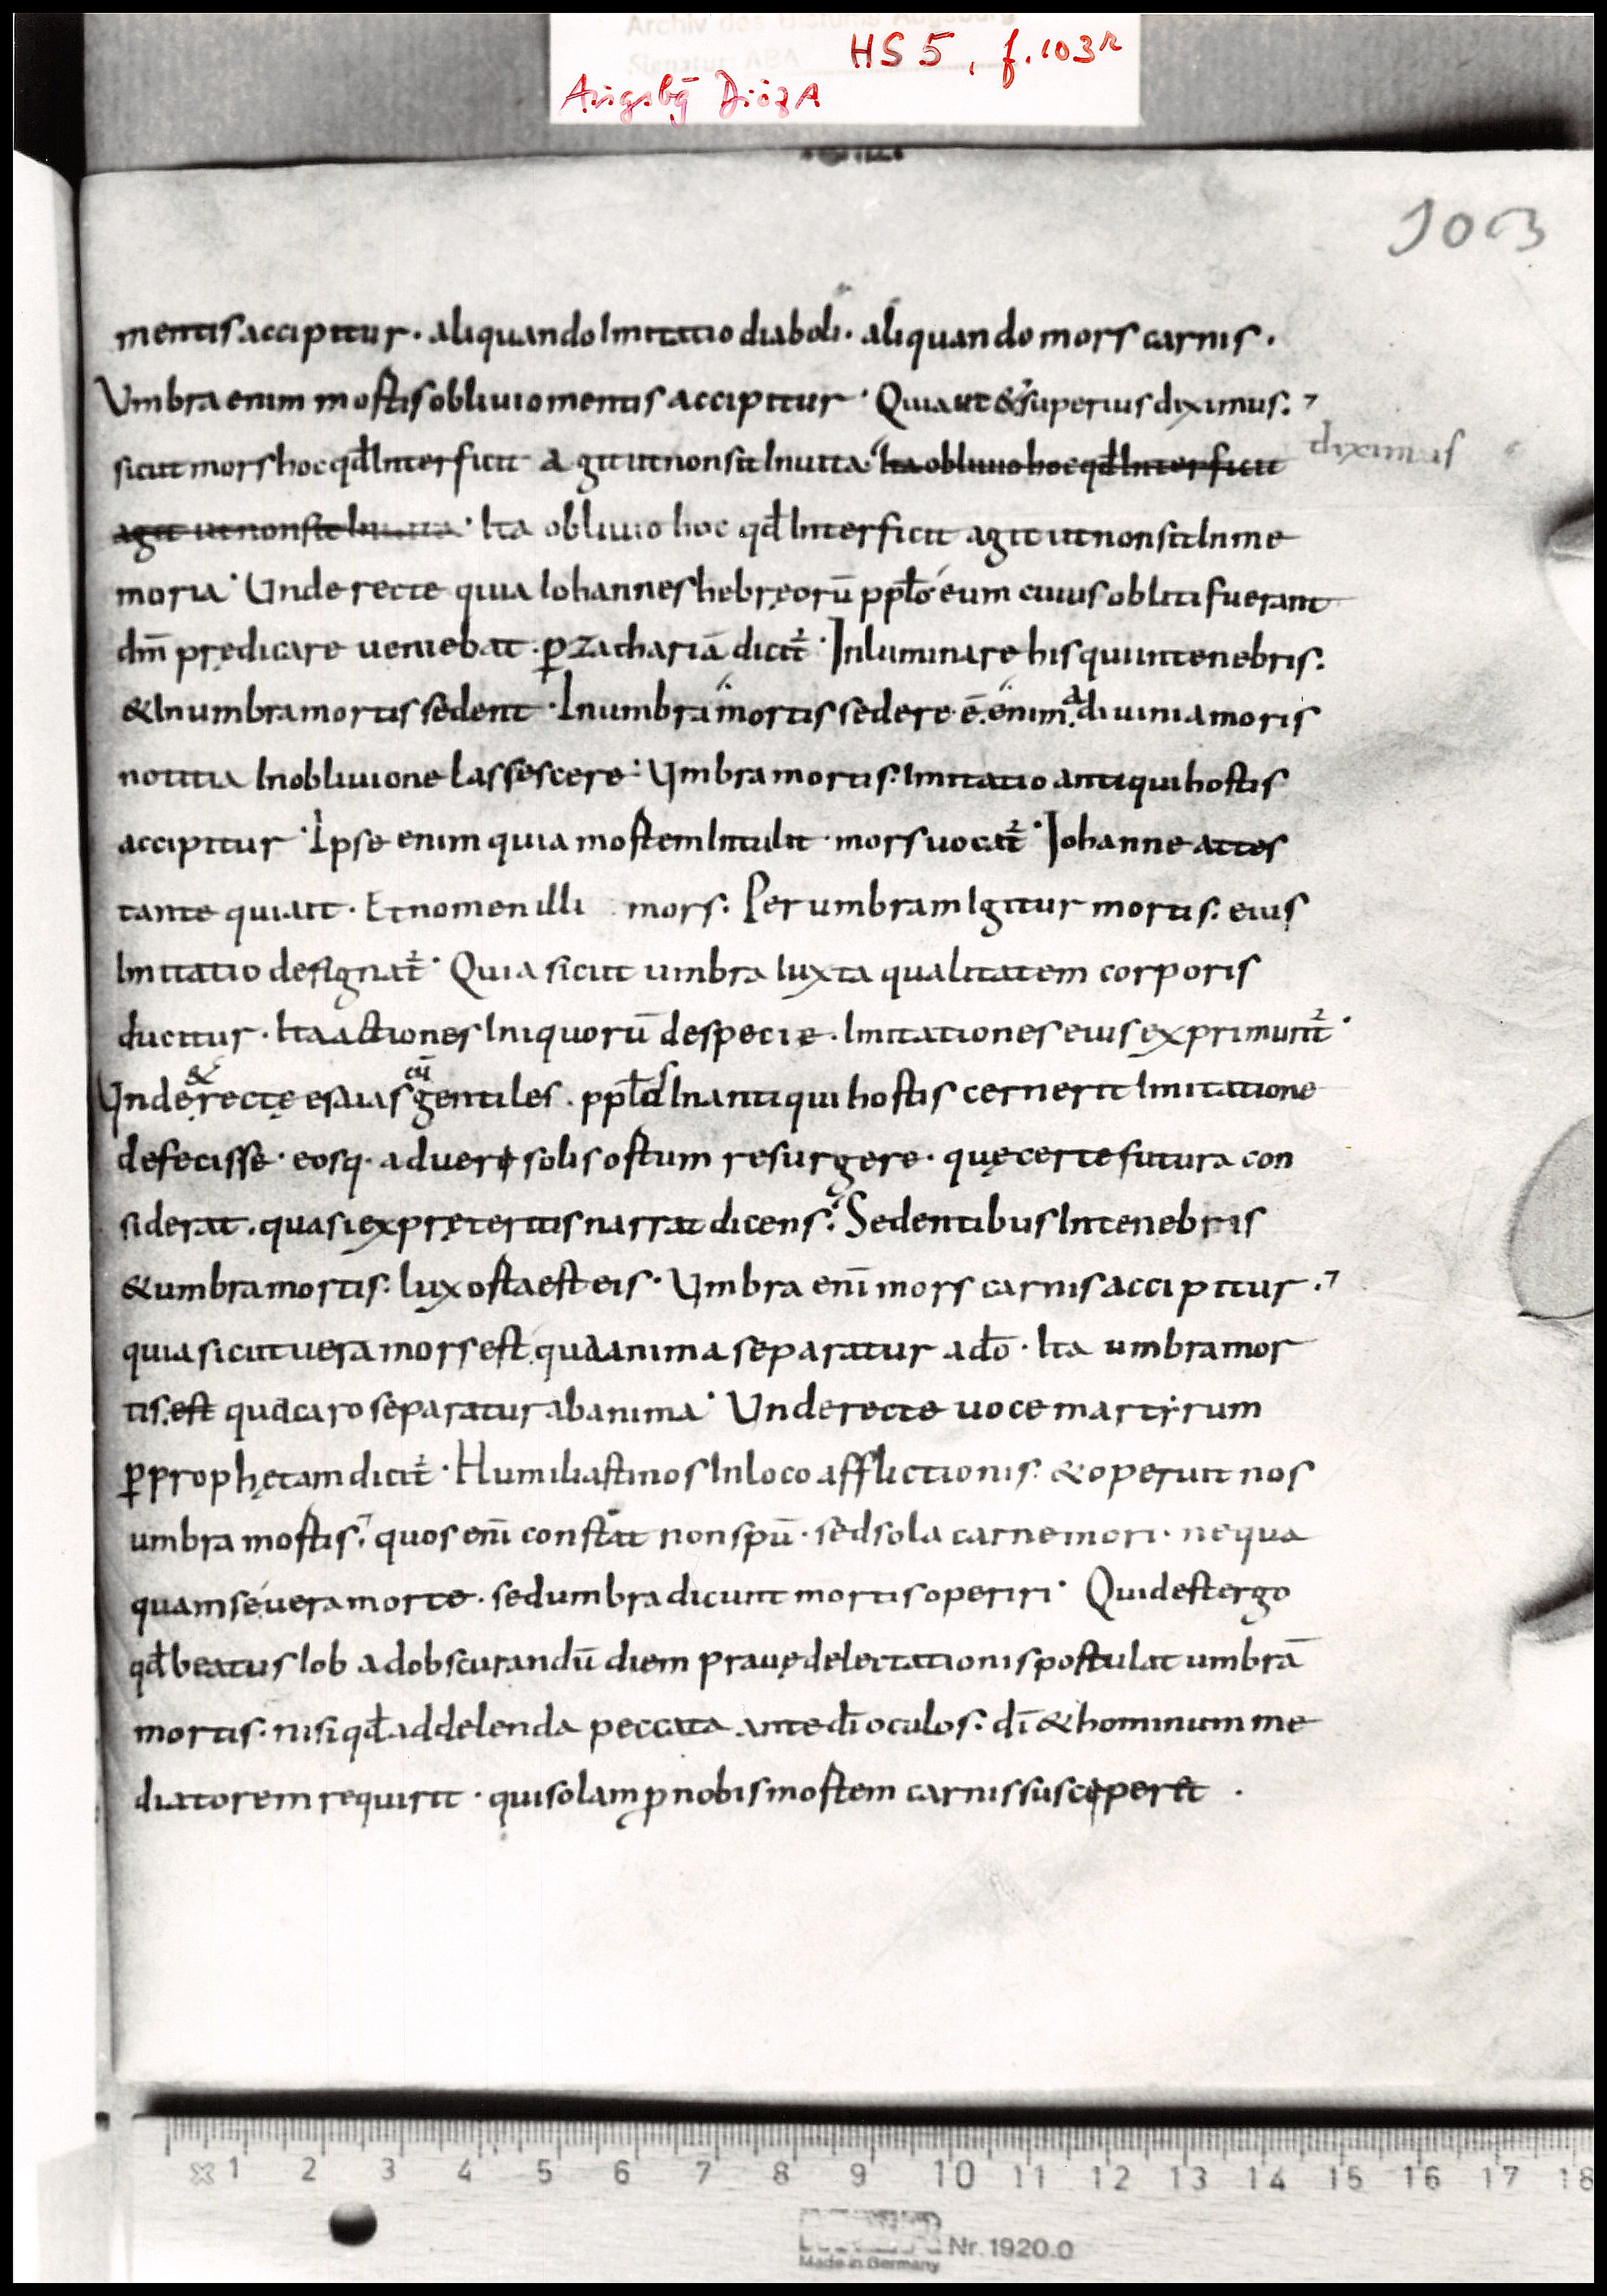 Archiv des Bistums Augsburg
Signatur: ABA
HS 5, f. 103r
Augsbg DiözA
103
mentis accipitur · aliquando Imitatio diaboli · aliquando mors carnis ·
Umbra enim mortis obliuio mentis accipitur · Quia ut & superius diximus:
diximus
sicut mors hoc qđ Interficit agit ut non sit In uita · Ita obliuio hoc qđ Interficit
agit ut non sit In uita · Ita obliuio hoc qđ Interficit agit ut non sit In me
moria · Unde recte quia Iohannes hebręorū ppło eum cuius obliti fuerant
dm̄ prędicare ueniebat · ꝑ zachariā dicit᷑ · Inluminare his qui in tenebris:
& In umbra mortis sedent · In umbra mortis sedere ē. enim. a diuini amoris
notitia In obliuione lassescere · Umbra mortis Imitatio antiqui hostis
accipitur · Ipse enim quia mortem Intulit · mors uocat᷑ · Iohanne attes
tante qui ait · Et nomen illi mors · Per umbram Igitur mortis · eius
Imitatio designat᷑ · Quia sicut umbra Iuxta qualitatem corporis
ducitur · Ita actiones Iniquorū de specie · Imitationes eius exprimunt᷑ ·
Unde & recte esaias cū gentiles · ppłos In antiqui hostis cernerit Imitatione
defecisse · eosq· ad ueri solis ortum resurgere · quę certe futura con
siderat · quasi ex pręteritis narrat dicens · Sedentibus In tenebris
& umbra mortis · lux orta est eis · Umbra enī mors carnis accipitur ·
quia sicut uera mors est qua anima separatur a dō · Ita umbra mor
tis est qua caro separatur ab anima · Unde recte uoce martyrum
ꝑ prophętam dicit᷑ · Humiliasti nos In loco afflictionis · & operuit nos
umbra mortis · quos enī constat non spū · sed sola carne mori · nequa
quam se uera morte · sed umbra dicunt mortis operiri · Quid est ergo
qđ beatus Iob ad obscurandū diem prauę delectationis postulat umbrā
mortis · nisi qđ ad delenda peccata ante dī oculos · dī & hominum me
diatorem requirit · qui solam ꝓ nobis mortem carnis susciperet ·
1 2 3 4 5 6 7 8 9 10 11 12 13 14 15 16 17 18
Nr. 1920.0
Made in Germany